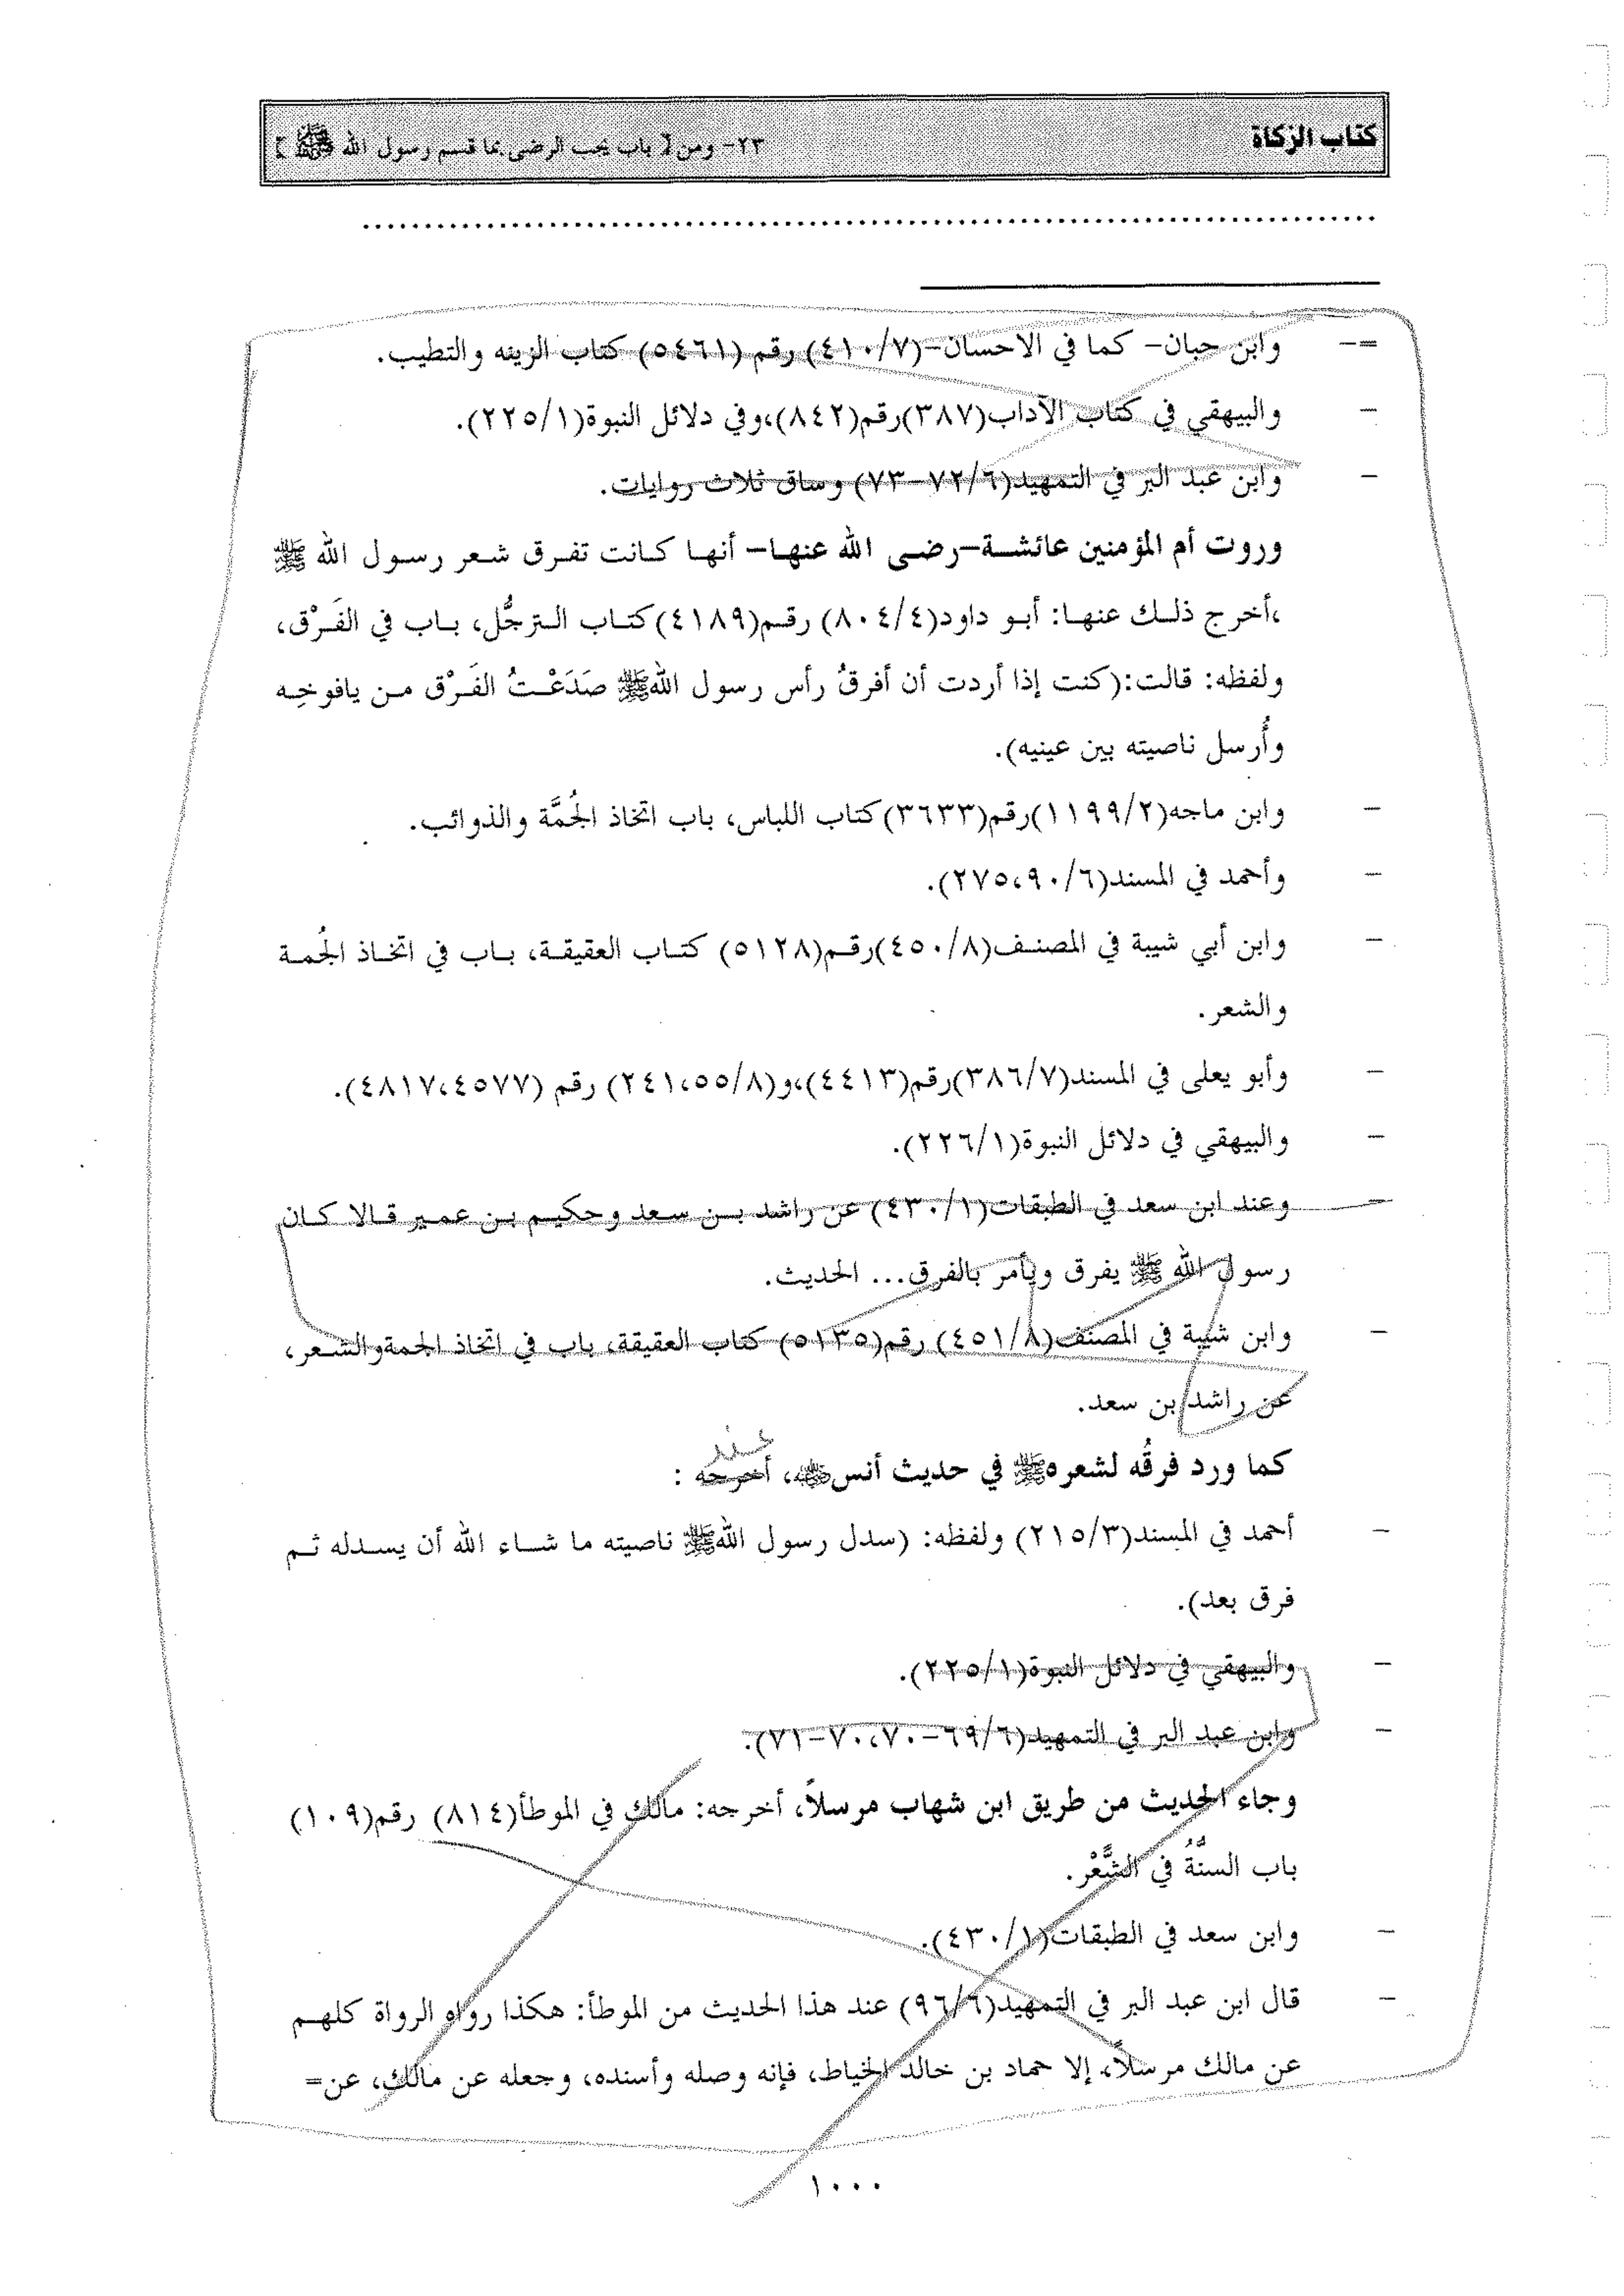 كتاب الزكاة
٢٣- ومن [ باب يجب الرضى بما قسم رسول الله ﷺ ]
................................................................................
=- وابن حبان- كما في الاحسان-(٤١٠/٧) رقم (٥٤٦١) كتاب الزينه والتطيب.
- والبيهقي في كتاب الآداب(٣٨٧)رقم(٨٤٢)،وفي دلائل النبوة(٢٢٥/١).
- وابن عبد البر في التمهيد(٧٢/٦-٧٣) وساق ثلاث روايات.
وروت أم المؤمنين عائشة-رضى الله عنها- أنها كانت تفرق شعر رسول الله ﷺ
،أخرج ذلك عنها: أبو داود(٨٠٤/٤) رقم(٤١٨٩)كتاب الترجُّل، باب في الفَرْق،
ولفظه: قالت:(كنت إذا أردت أن أفرقُ رأس رسول اللهﷺ صَدَعْتُ الفَرْق من يافوخِه
وأُرسل ناصيته بين عينيه).
- وابن ماجه(١١٩٩/٢)رقم(٣٦٣٣)كتاب اللباس، باب اتخاذ الجُمَّة والذوائب.
- وأحمد في المسند(٢٧٥،٩٠/٦).
- وابن أبي شيبة في المصنف(٤٥٠/٨)رقم(٥١٢٨) كتاب العقيقة، باب في اتخاذ الجُمة
والشعر.
- وأبو يعلى في المسند(٣٨٦/٧)رقم(٤٤١٣)،و(٢٤١،٥٥/٨) رقم (٤٨١٧،٤٥٧٧).
- والبيهقي في دلائل النبوة(٢٢٦/١).
- وعند ابن سعد في الطبقات(٤٣٠/١) عن راشد بن سعد وحكيم بن عمير قالا كان
رسول الله ﷺ يفرق ويأمر بالفرق... الحديث.
- وابن شيبة في المصنف(٤٥١/٨) رقم(٥١٣٥) كتاب العقيقة، باب في اتخاذ الجمةوالشعر،
عن راشد بن سعد.
عند
كما ورد فرقُه لشعرهﷺ في حديث أنسﷺ، أخرجه :
- أحمد في المسند(٢١٥/٣) ولفظه: (سدل رسول اللهﷺ ناصيته ما شاء الله أن يسدله ثم
فرق بعد).
- والبيهقي في دلائل النبوة(٢٢٥/١).
- وابن عبد البر في التمهيد(٦٩/٦-٧٠،٧٠-٧١).
وجاء الحديث من طريق ابن شهاب مرسلاً، أخرجه: مالك في الموطأ(٨١٤) رقم(١٠٩)
باب السنَّةُ في الشَّعْر.
- وابن سعد في الطبقات(٤٣٠/١).
- قال ابن عبد البر في التمهيد(٩٦/٦) عند هذا الحديث من الموطأ: هكذا رواه الرواة كلهم
عن مالك مرسلاً، إلا حماد بن خالد الخياط، فإنه وصله وأسنده، وجعله عن مالك، عن=
١٠٠٠